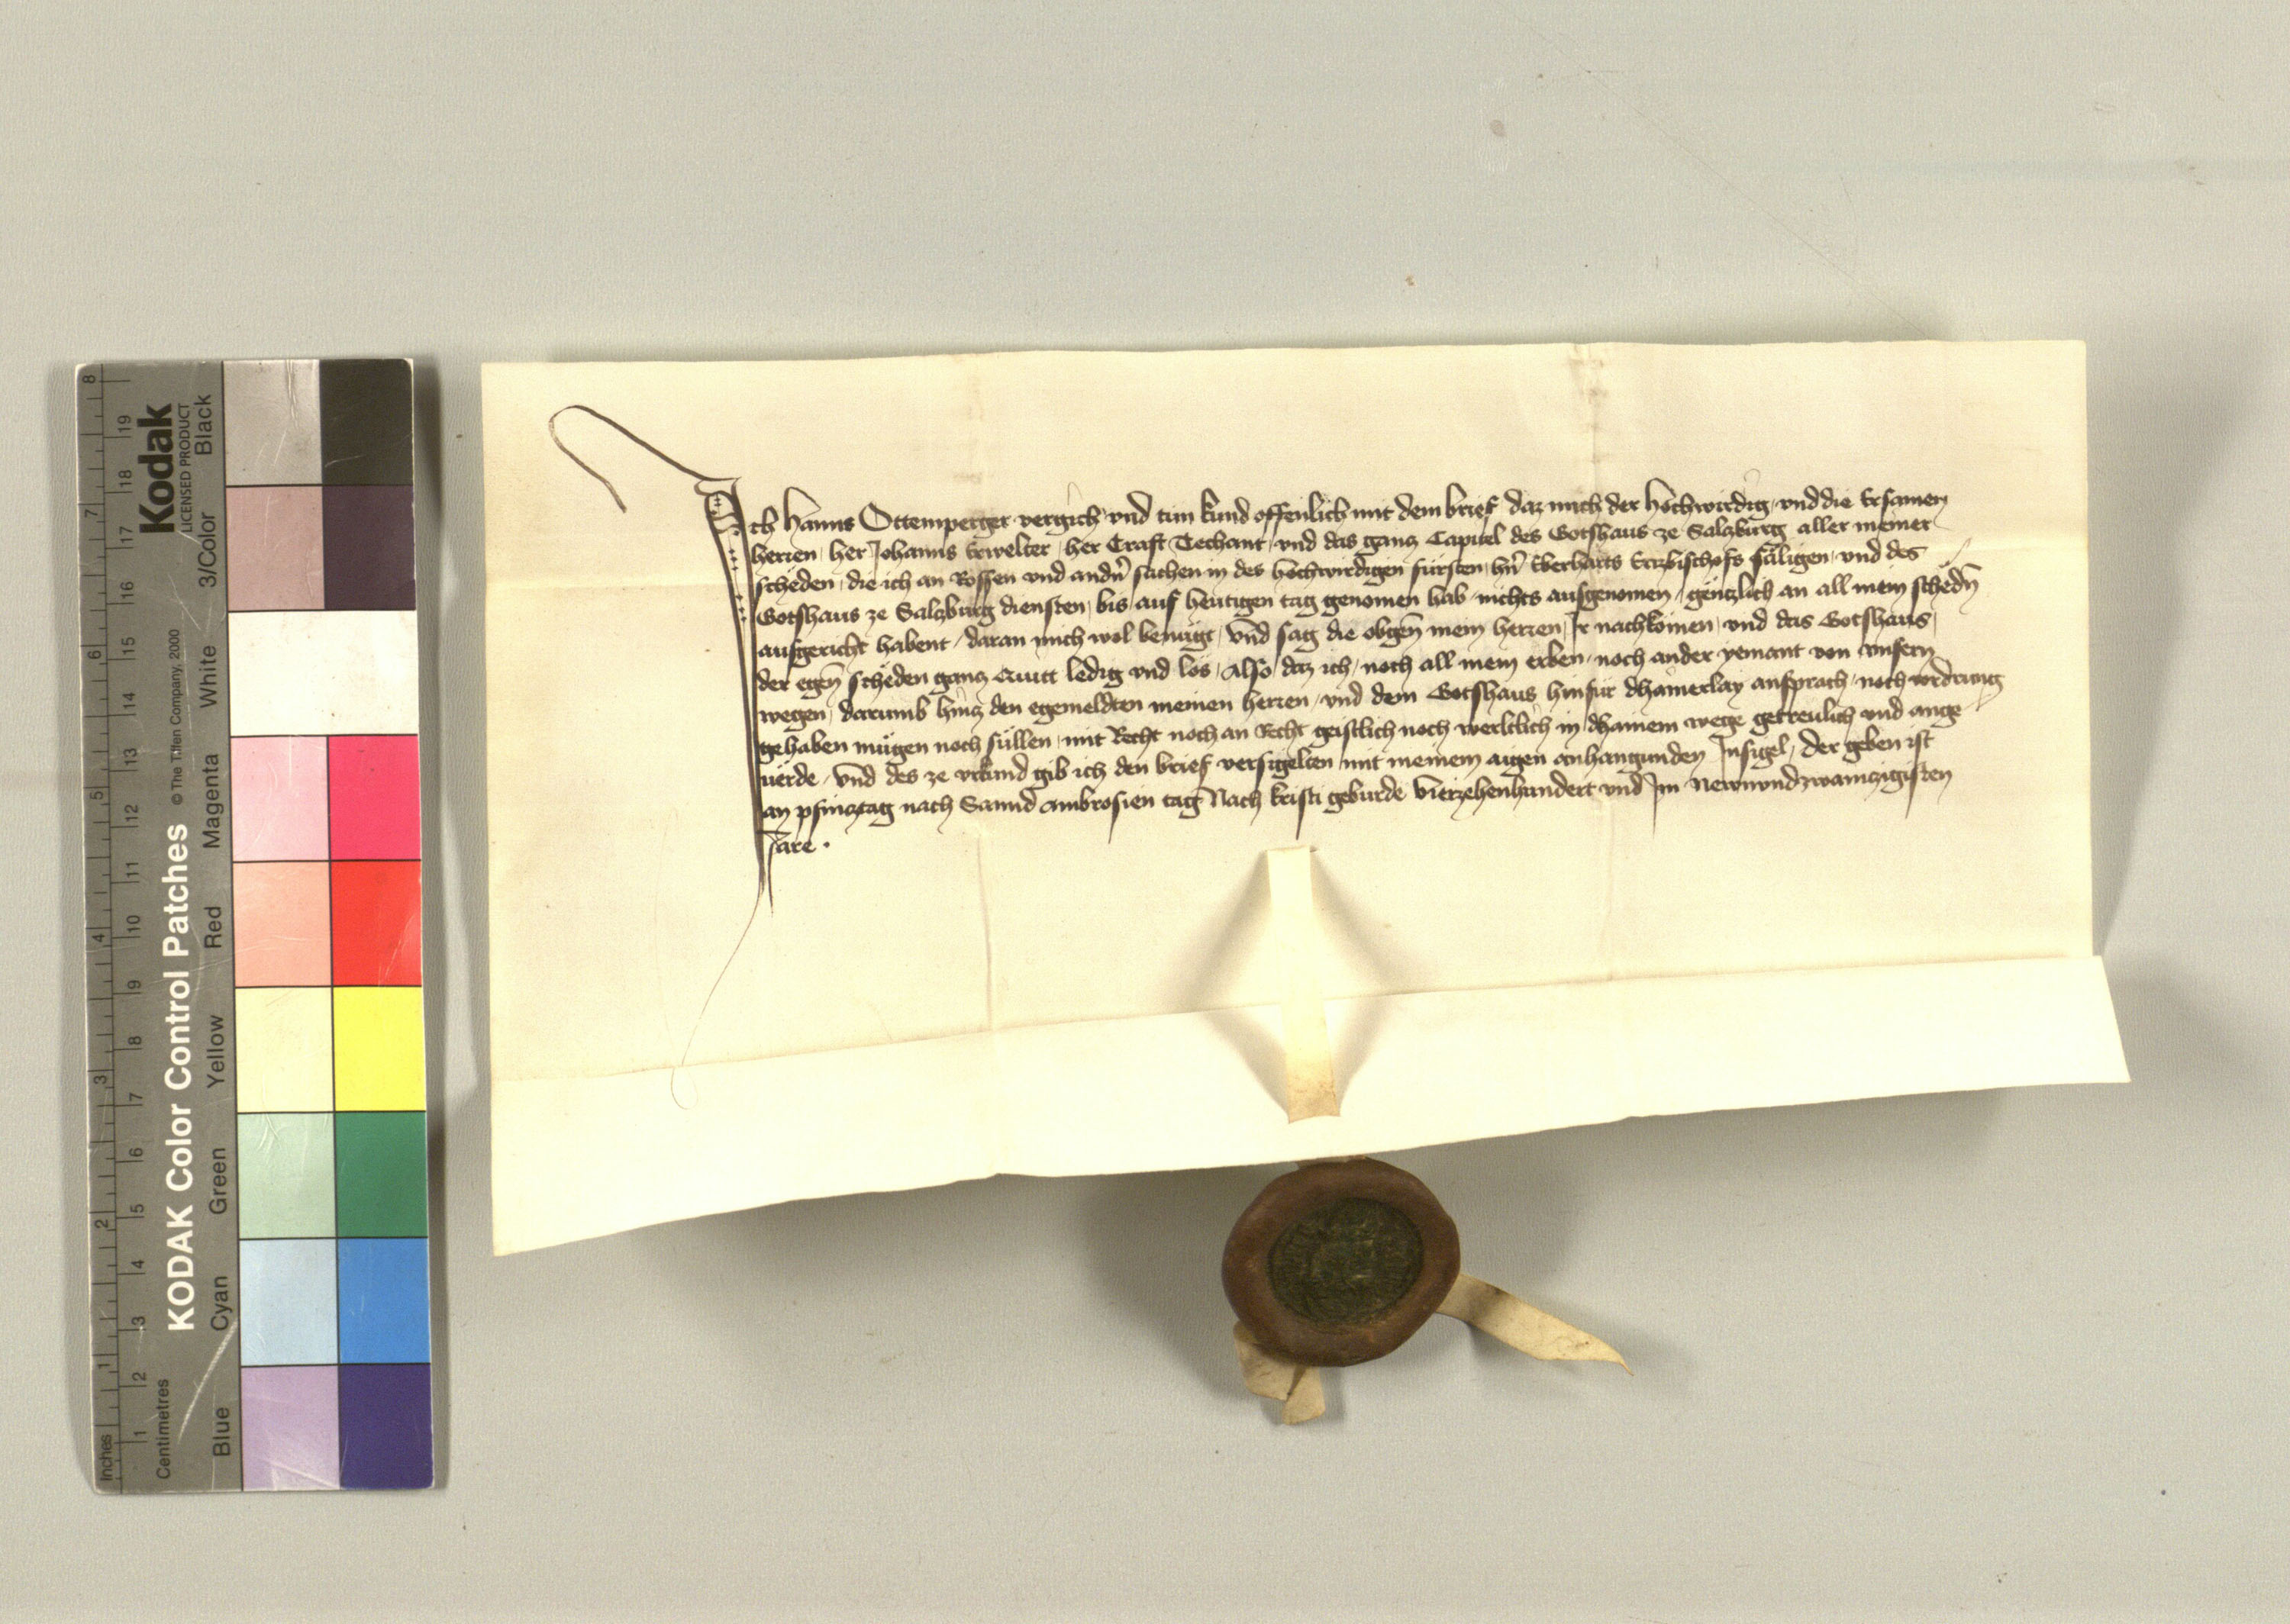 Ich Hanns Ottemperger vergich und tun kund offenlich mit dem brief daz mich der Hochwirdig und die Ersamen
herren her Johanns Erwelter her Craft Techant und das ganz Capitel des Gotshaus ze Salzburg aller meiner
scheden die ich an Rossen und andn̄ sachen in des hochwirdigen fürsten hn̄ Eberharts Erzbischofs säligen und des
Gotshaus ze Salzburg diensten bis auf heutigen tag genomen hab nichts ausgenomen gentzlich an all mein schedn̄
ausgericht habent daran mich wol benügt Und sag die obgen̄ mein herren Ir nachkomen und das Gotshaus
der egen̄ scheden ganz Quitt ledig und los Also daz ich noch all mein erben noch ander yemant von unsern
wegen darumb hinz den egemeldten meinen herren und dem Gotshaus hinfür dhainerlay ansprach noch vordrung
gehaben mügen noch süllen mit Recht noch an Recht geistlich noch werltlich in dhainem wege getreulich und ange
uerde Und des ze urkund gib ich den brief versigelten mit meinem aigen anhangunden Insigel Der geben ist
an pfinztag nach Sannd Ambrosien tag Nach kristi geburde Vierzehenhundert und Im Newnundzwainzigisten
Jare.
Kodak
LICENSED PRODUCT
KODAK Color Control Patches
© The Tiffen Company, 2000
Black
3/Color
White
Magenta
Red
Yellow
Green
Cyan
Blue
Inches
1 2 3 4 5 6 7 8
Centimetres
1 2 3 4 5 6 7 8 9 10 11 12 13 14 15 16 17 18 19